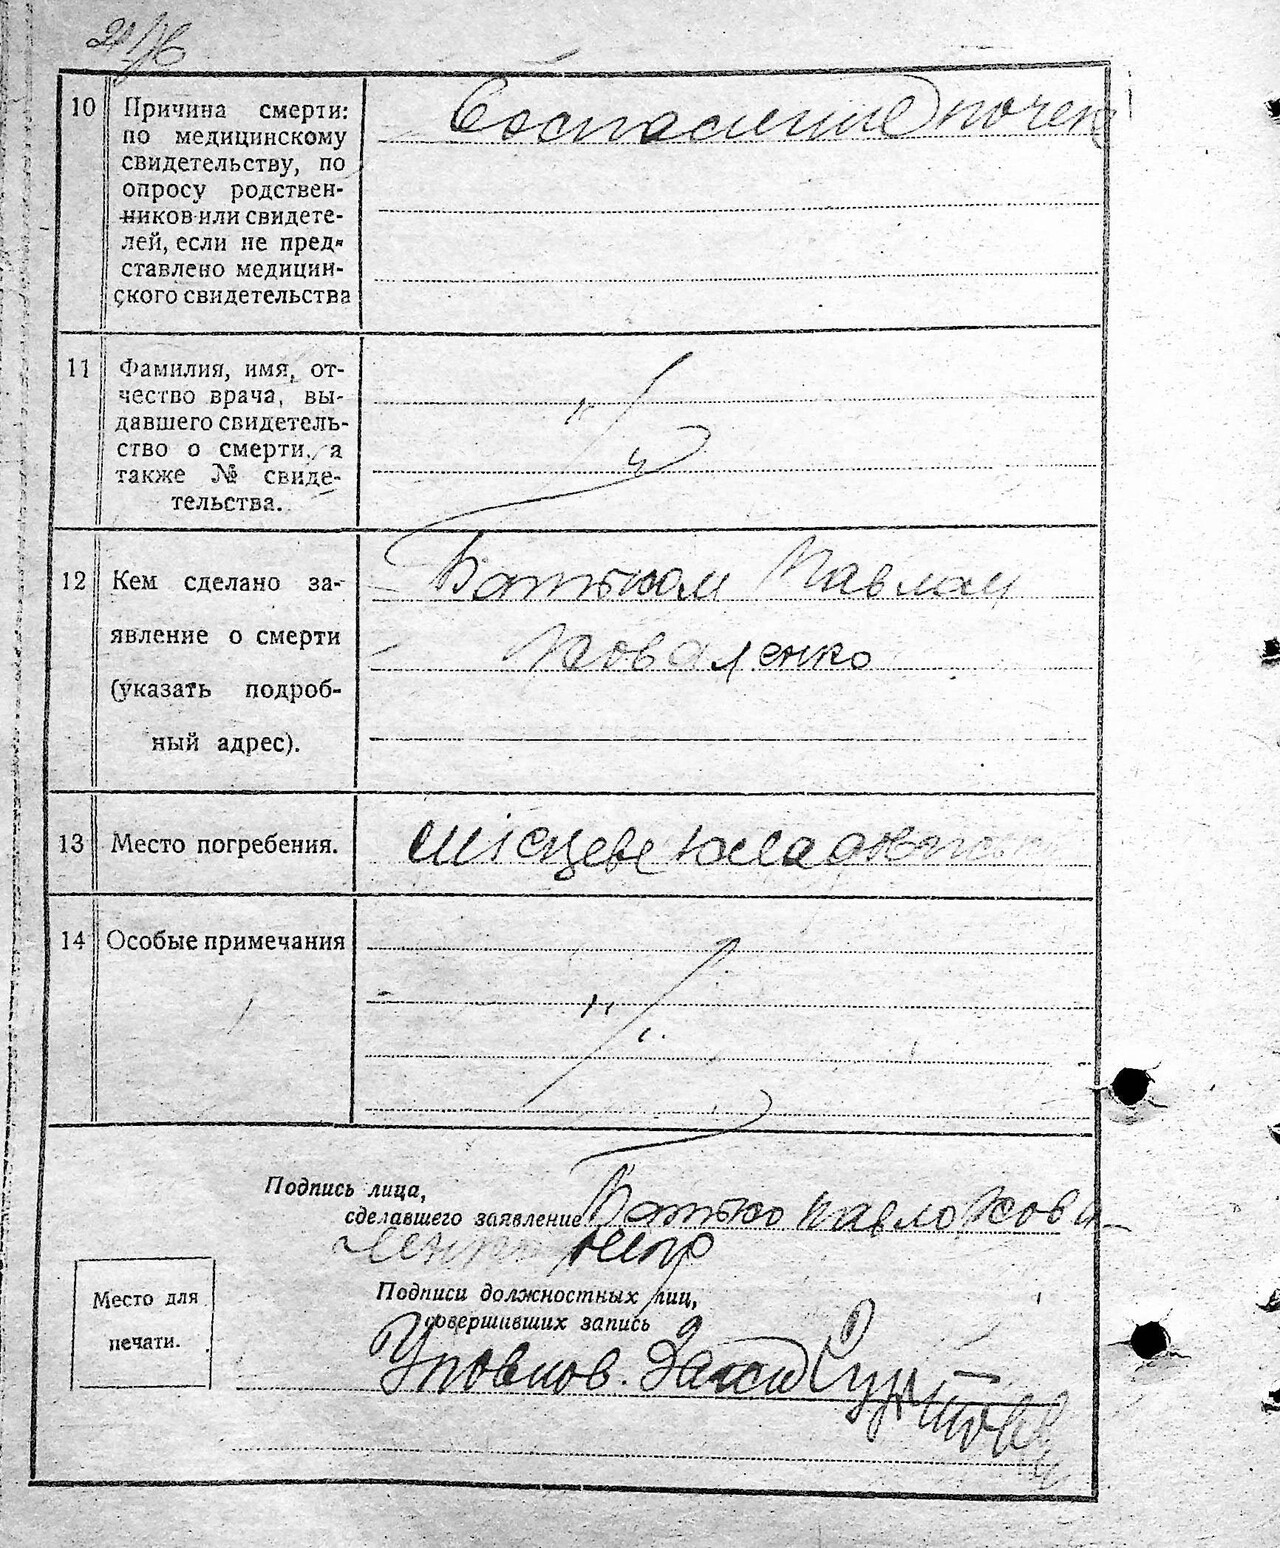 10 Причина смерти:
по медицинскому
свидетельству, по
опросу родствен-
ников или свидете-
лей, если не пред-
ставлено медицин-
ского свидетельства
Воспаление почек
11 Фамилия, имя, от-
чество врача, вы-
давшего свидетель-
ство о смерти, а
также № свиде-
тельства.
12 Кем сделано за-
явление о смерти
(указать подроб-
ный адрес).
Батьком Павлом
Коваленко
13 Место погребения.
місцеве кладовище
14 Особые примечания
Подпись лица,
сделавшего заявление Батько Павло Кова-
ленко
Подписи должностных лиц,
совершивших запись
Место для
печати.
Уповнов.